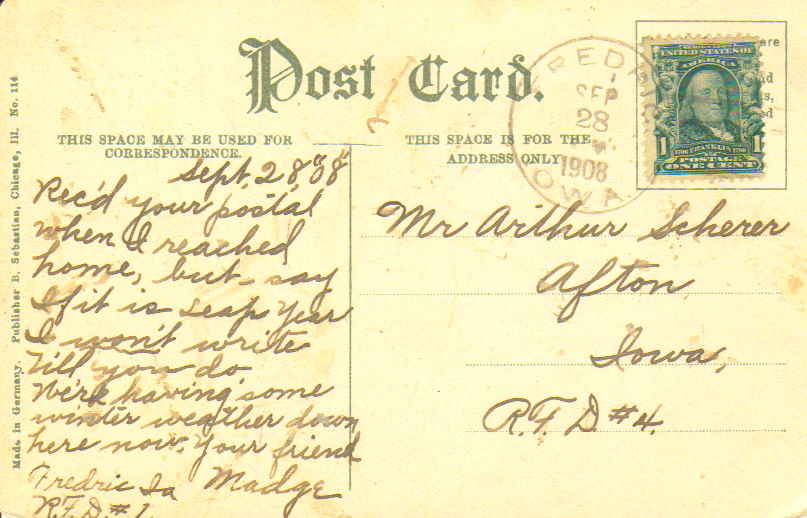 Post Card.
THIS SPACE MAY BE USED FOR
CORRESPONDENCE.
THIS SPACE IS FOR THE
ADDRESS ONLY
SEP
28
1908
IOWA
UNITED STATES OF
AMERICA
1 FRANKLIN 1
POSTAGE
ONE CENT
Sept, 28 "08"
Rec'd your postal
when I reached
home, but say
If it is Leap Year
I won't write
till you do
We're having some
winter weather down
here now. Your friend
Fredric Ia Madge
R.F.D. #1
Mr Arthur Scherer
Afton
Iowa,
R.F.D #4.
Made in Germany. Publisher B. Sebastian, Chicago, Ill. No. 114